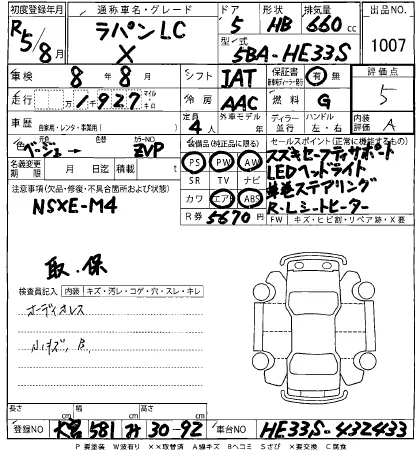 初度登録年月 通称車名・グレード ドア 形状 排気量 出品NO.
R5/8月 ラパンLC 5 HB 660cc
X 型式 5BA-HE33S 1007
車検 8年8月 シフト IAT 保証書 有 無 評価点
走行 1927 マイル キロ 冷房 AAC 燃料 G 5
車歴 自家用・レンタ・事業用( ) 定員 4人 外車モデル 年 ディーラー 並行 ハンドル 左・右 内装評価 A
色 ベージュ→ 色替 カラーNO ZVP
装備品(純正品に限る) セールスポイント(正常に機能するもの)
名義変更期限 月 日迄 積載 t
PS PW AW スズキセーフティサポート
SR TV ナビ LEDヘッドライト
カワ エアB ABS 革巻ステアリング
R券 5670円 R・Lシートヒーター
注意事項(欠品・修復・不具合箇所および状態) FW キズ・ヒビ割・リペア跡・X要
NSXE-M4
取.保
検査員記入 内装 キズ・汚レ・コゲ・穴・スレ・キレ
オーディオレス
小キズ
長さ cm 幅 cm 高さ cm
登録NO 581 み 30-92 車台NO HE33S-432433
P 要塗装 W波有り ××取替済 A線キズ Bヘコミ Sさび ×要交換 C腐食